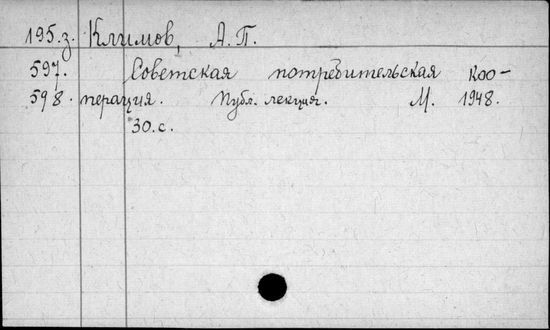 195.з. Климов, А.П.
597. Советская потребительская коо-
598. перация. Публ. лекция. М. 1948.
30.с.